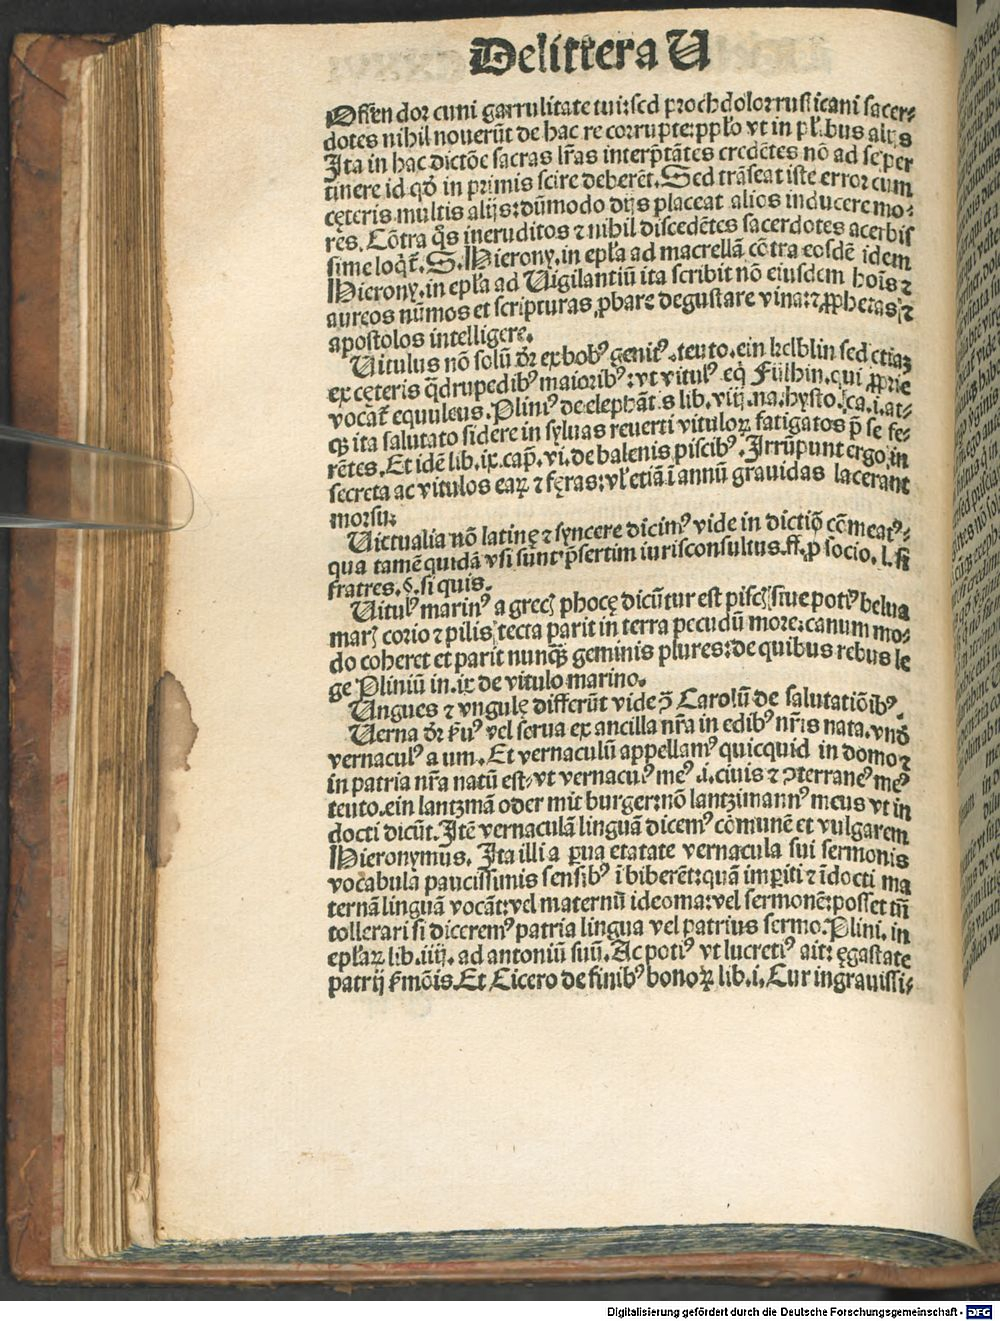 De littera U
Offen dor cuni garrulitate tui: sed proch dolor rusticani sacer⸗
dotes nihil nouerūt de hac re corrupte: ꝓpło vt in pł.bus alijs
Ita in hac dictōe sacras lr̄as interp̄tātes credētes nō ad se per
tinere id qđ in primis scire deberēt. Sed trāseat iste error cum
cęteris multis alijs: dūmodo dijs placeat alios inducere mo⸗
res. Cōtra q̄s ineruditos ⁊ nihil discedētes sacerdotes acerbis
sime loq̄t᷑. S. Hierony. in epła ad macrellā cōtra eosdē idem
Hierony. in epła ad Uigilantiū ita scribit nō eiusdem hoīs ⁊
aureos nūmos et scripturas ꝓbare degustare vina: ⁊ ꝓphetas ⁊
apostolos intelligere.
Uitulus nō solū dr̄ ex bobꝰ genitꝰ. teuto. ein kelblin sed etiaꝫ
ex cęteris q̄drupedibꝰ maioribꝰ: vt vitulꝰ eq̇ Fülhin. qui ꝓprie
vocāt᷑ equuleus. Pliniꝰ de elephātis lib. viij. na. hysto. ca. i. at⸗
qꝫ ita salutato sidere in syluas reuerti vituloꝝ fatigatos p̄ se fe⸗
rētes. Et idē lib. ix. cap. vi. de balenis piscibꝰ. Irrūpunt ergo in
secreta ac vitulos eaꝝ ⁊ fęras: vł etiā ī annū grauidas lacerant
morsu:
Uictualia nō latine ⁊ syncere dicimꝰ vide in dictiō cōmeatꝰ⸗
qua tamē quidā vsi sunt p̄sertim iurisconsultus. ff. ꝓ socio. l. si
fratres. §. si quis.
Uitulꝰ marinꝰ a grecꝭ phocę dicūtur est piscꝭ siue potiꝰ belua
marꝭ corio ⁊ pilis tecta parit in terra pecudū more: canum mo⸗
do coheret et parit nunqꝫ geminis plures: de quibus rebus le
ge Pliniū in. ix de vitulo marino.
Ungues ⁊ vngulę differūt vide ꝯ Carolū de salutatiōibꝰ.
Uerna dr̄ ẜuꝰ vel serua ex ancilla nr̄a in edibꝰ nr̄is nata. vnđ
vernaculꝰ a um. Et vernaculū appellamꝰ quicquid in domo ⁊
in patria nr̄a natū est, vt vernaculꝰ meꝰ .i. ciuis ⁊ ꝯterraneꝰ meꝰ
teuto. ein lantzmā oder mit burger: nō lantzimannꝰ meus vt in
docti dicūt. Itē vernaculā linguā dicemꝰ cōmunē et vulgarem
Hieronymus. Ita illi a ꝑua etatate vernacula sui sermonis
vocabula paucissimis sensibꝰ ībiberēt: quā imperiti ⁊ īdocti ma
ternā linguā vocāt: vel maternū ideoma: vel sermonē: posset tn̄
tollerari si diceremꝰ patria lingua vel patrius sermo. Plini. in
epłaꝝ lib. iiij. ad antoniū suū. Ac potiꝰ vt lucretiꝰ ait: ęgastate
patrij ẜmōis. Et Cicero de finibꝰ bonoꝝ lib. i. Cur in grauissi⸗
Digitalisierung gefördert durch die Deutsche Forschungsgemeinschaft - DFG